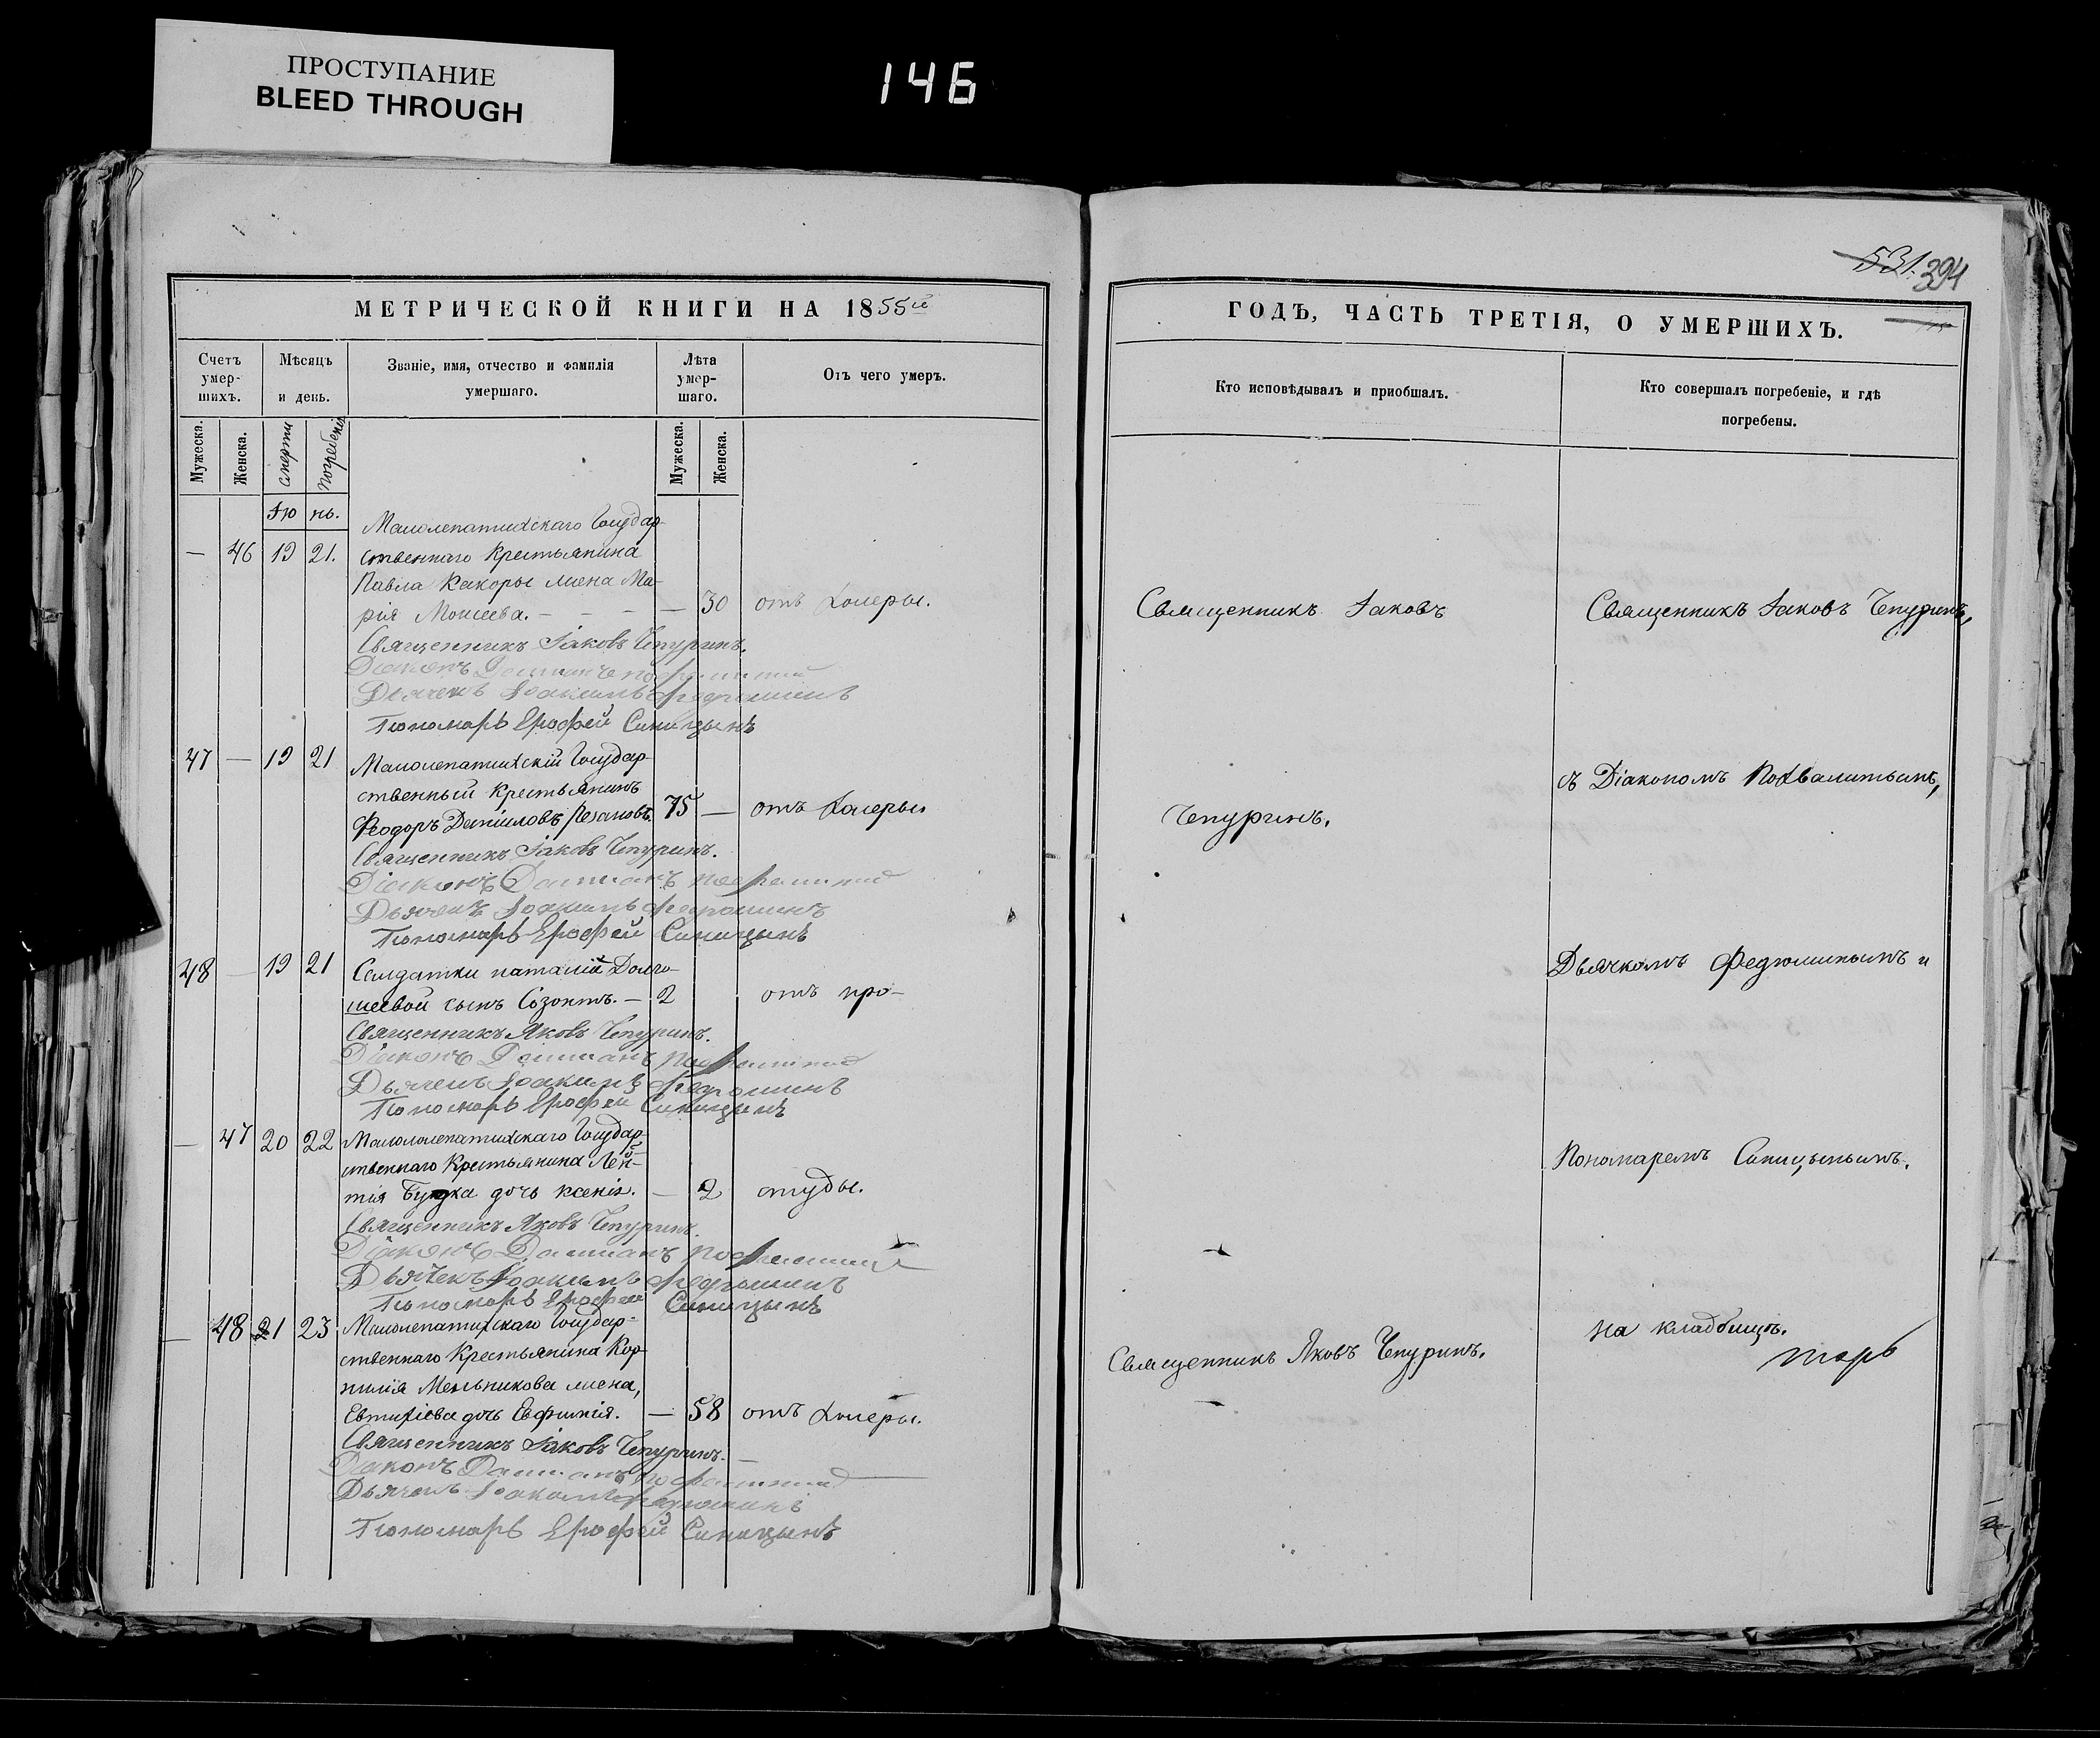 ПРОСТУПАНИЕ
BLEED THROUGH
146
531. 394
МЕТРИЧЕСКОЙ КНИГИ НА 1855й
ГОДЪ, ЧАСТЬ ТРЕТІЯ, О УМЕРШИХЪ.
Счетъ умер-шихъ.
Мѣсяцъ и день.
Званіе, имя, отчество и фамилія
умершаго.
Лѣта умер-шаго.
Отъ чего умеръ.
Кто исповѣдывалъ и приобщалъ.
Кто совершалъ погребеніе, и гдѣ
погребены.
Мужеска. Женска. смерти погребенія Мужеска. Женска.
Ію нь.
Малолепатихскаго Государ-
— 46 19 21. ственнаго Крестьянина
Павла Какоры жена Ма-
рія Моисеева. — — — — 30 отъ холеры.
Священникъ Іаковъ Чепуринъ.
Діаконъ Даміанъ Похвалитий
Дьячекъ Іоакимъ Федюшинъ
Пономарь Ерофей Синицынъ
47 — 19 21 Малолепатихскій Государ-
ственный Крестьянинъ
Феодоръ Даниловъ 75 — отъ холеры
Священникъ Іаковъ Чепуринъ.
Діаконъ Даміанъ Похвалитий
Дьячекъ Іоакимъ Федюшинъ
Пономарь Ерофей Синицынъ
48 — 19 21 Солдатки Наталіи Долго-
шеевой сынъ Созонтъ. — 2 отъ
Священникъ Яковъ Чепуринъ.
Діаконъ Даміанъ Похвалитий
Дьячекъ Іоакимъ Федюшинъ
Пономарь Ерофей Синицынъ
— 47 20 22 Малолепатихскаго Государ-
ственнаго Крестьянина Леон-
тія дочь Ксенія. — 2
Священникъ Яковъ Чепуринъ.
Діаконъ Даміанъ Похвалитий
Дьячекъ Іоакимъ Федюшинъ
Пономарь Ерофей Синицынъ
— 48 21 23 Малолепатихскаго Государ-
ственнаго Крестьянина Кор-
нилія Мельникова жена,
Евтихіева дочь Евфимія. — 58 отъ холеры.
Священникъ Іаковъ Чепуринъ.
Діаконъ Даміанъ Похвалитий
Дьячекъ Іоакимъ Федюшинъ
Пономарь Ерофей Синицынъ
Священникъ Іаковъ
Чепуринъ.
Священникъ Яковъ Чепуринъ.
Священникъ Іаковъ Чепуринъ,
съ Діакономъ Похвалитымъ,
Дьячкомъ Федюшинымъ и
Пономаремъ Синицынымъ.
на кладбищѣ.